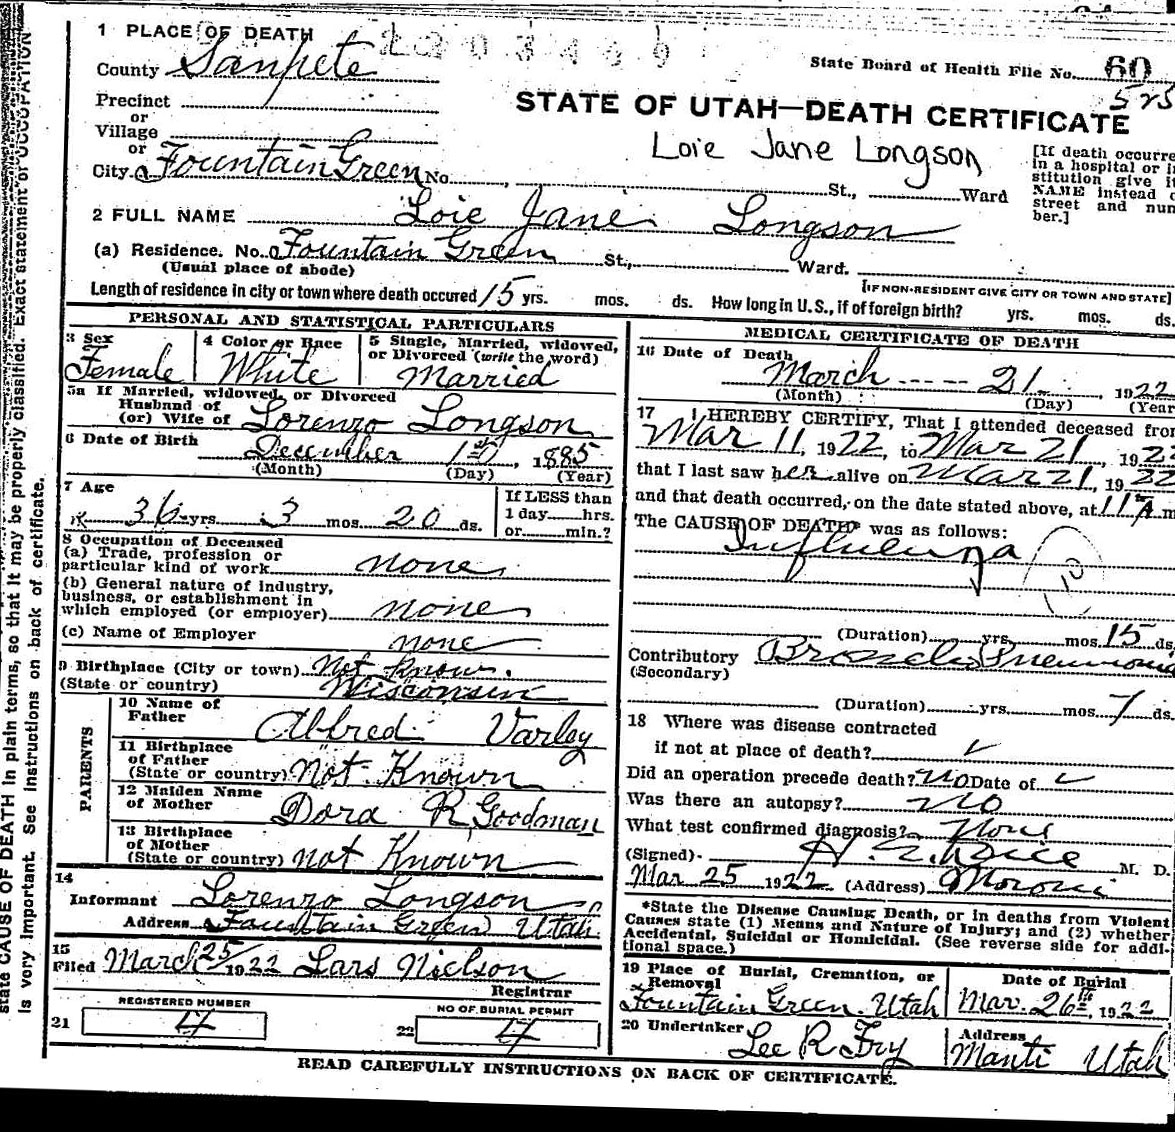 1 PLACE OF DEATH
County Sanpete
State Board of Health File No. 60
Precinct
or
Village
or
STATE OF UTAH—DEATH CERTIFICATE
Loie Jane Longson
City. Fountain Green No. , St., Ward
[If death occurre
in a hospital or in
stitution give it
NAME instead o
street and num
ber.]
2 FULL NAME Loie Jane Longson
(a) Residence. No. Fountain Green St., Ward.
(Usual place of abode)
[IF NON-RESIDENT GIVE CITY OR TOWN AND STATE]
Length of residence in city or town where death occured 15 yrs. mos. ds. How long in U.S., if of foreign birth? yrs. mos. ds.
PERSONAL AND STATISTICAL PARTICULARS
3 Sex
Female
4 Color or Race
White
5 Single, Married, widowed,
or Divorced (write the word)
Married
5a If Married, widowed, or Divorced
Husband of
(or) Wife of Lorenzo Longson
6 Date of Birth December 1st, 1885
(Month) (Day) (Year)
7 Age
36 yrs. 3 mos. 20 ds.
If LESS than
1 day hrs.
or min.?
8 Occupation of Deceased
(a) Trade, profession or
particular kind of work none
(b) General nature of industry,
business, or establishment in
which employed (or employer) none
(c) Name of Employer none
9 Birthplace (City or town) Not Know.
(State or country) Wisconsin
PARENTS
10 Name of
Father Alfred Varley
11 Birthplace
of Father
(State or country) Not Known
12 Maiden Name
of Mother Dora R Goodman
13 Birthplace
of Mother
(State or country) not Known
14
Informant Lorenzo Longson
Address Fountain Green Utah
15
Filed March 25 1922 Lars Nielson
Registrar
REGISTERED NUMBER
21 4
NO. OF BURIAL PERMIT
22 4
MEDICAL CERTIFICATE OF DEATH
16 Date of Death
March 21 1922
(Month) (Day) (Year
17 I HEREBY CERTIFY, That I attended deceased from
Mar 11, 1922, to Mar 21, 1922
that I last saw her alive on Mar 21, 1922
and that death occurred, on the date stated above, at 11 A m
The CAUSE OF DEATH* was as follows:
Influenza
10
(Duration) yrs. mos. 15 ds.
Contributory Broncho Pneumonia
(Secondary)
(Duration) yrs. mos. 7 ds.
18 Where was disease contracted
if not at place of death?
Did an operation precede death? no Date of
Was there an autopsy? no
What test confirmed diagnosis? None
(Signed) M. D.
Mar 25 1922 (Address) Moroni
*State the Disease Causing Death, or in deaths from Violent
Causes state (1) Means and Nature of Injury; and (2) whether
Accidental, Suicidal or Homicidal. (See reverse side for addi-
tional space.)
19 Place of Burial, Cremation, or
Removal
Fountain Green. Utah
Date of Burial
Mar. 26th, 1922
20 Undertaker
Lee R Fry
Address
Manti Utah
READ CAREFULLY INSTRUCTIONS ON BACK OF CERTIFICATE.
state CAUSE OF DEATH in plain terms, so that it may be properly classified. Exact statement of OCCUPATION
is very important. See instructions on back of certificate.